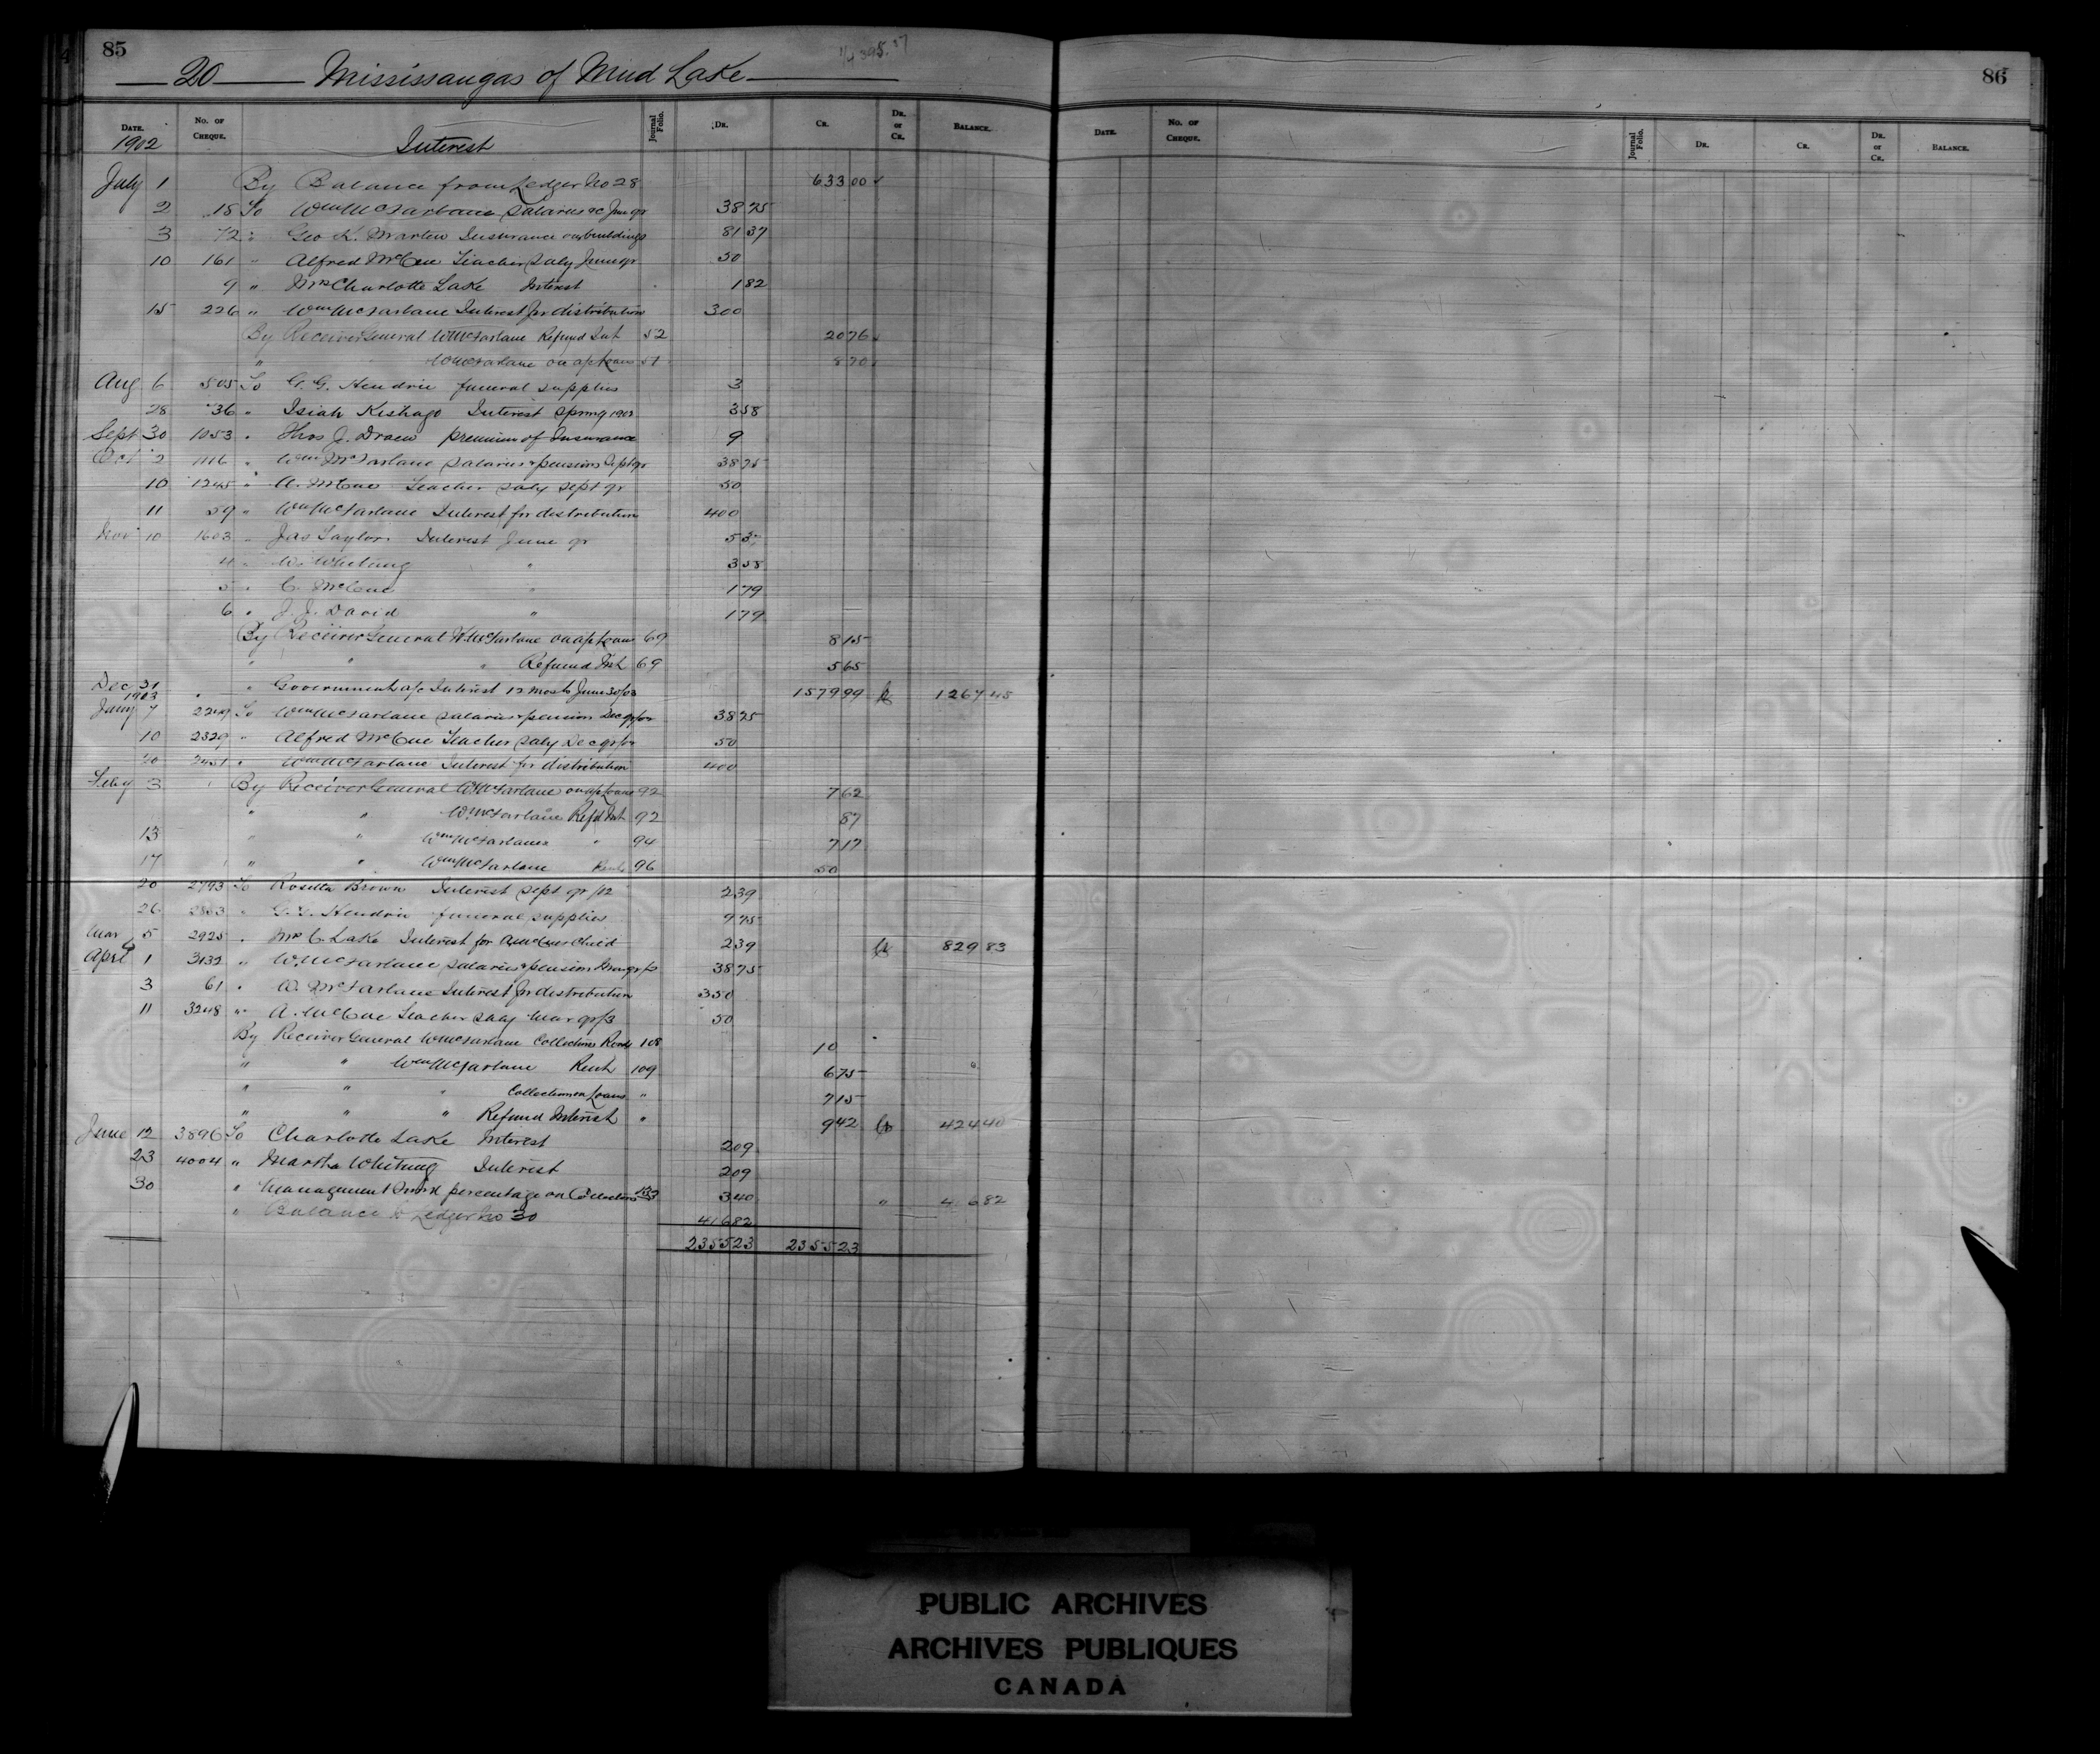 85
20 Mississaugas of Mud Lake
DATE. No. OF CHEQUE. Journal Folio. DR. CR. DR. or CR. BALANCE.
1902 Interest
July 1 By Balance from Ledger No 28 633 00
2 18 To Wm McFarlane Salaries &c June qr 38 75
3 72 " Geo K. Martin Insurance on buildings 81 37
10 161 " Alfred McCue Teacher Saly June qr 50
9 " Mrs Charlotte Lake Interest 1 82
15 226 " Wm McFarlane Interest for distribution 300
By Receiver General W McFarlane Refund Int 52 20 76
" W McFarlane on a/c Loans 51 8 70
Aug 6 505 To G. G. Hendrie funeral supplies 3
28 36 " Isiah Kishago Interest Spring 1902 3 58
Sept 30 1053 " Thos J. Draew premium of Insurance 9
Oct 2 1116 " Wm McFarlane Salaries & pensions Sept qr 38 75
10 1245 " A. McCue Teacher Saly Sept qr 50
11 59 " Wm McFarlane Interest for distribution 400
Nov 10 1603 " Jas Taylor Interest June qr 5 37
4 " W. Whetung " 3 58
5 " C. McCue " 1 79
6 " J. J. David " 1 79
By Receiver General W. McFarlane on a/c Loans 69 8 15
" " " Refund Int 69 5 65
Dec 31 " Government a/c Interest 12 mos to June 30/03 1579 99 Cr 1267 45
1903
Jany 7 2249 To Wm McFarlane Salaries & pension Dec qr/02 38 75
10 2329 " Alfred McCue Teacher Saly Dec qr/02 50
20 2451 " Wm McFarlane Interest for distribution 400
Feby 3 By Receiver General W McFarlane on a/c Loans 92 7 62
" " W. McFarlane Refd Int 92 87
13 " " Wm McFarlane " 94 7 17
17 " " Wm McFarlane Rent 96 50
20 2793 To Rosetta Brown Interest Sept qr/02 2 39
26 2863 " G. G. Hendrie funeral supplies 7 75
Mar 5 2925 " Mrs C. Lake Interest for A McCues Child 2 39 Cr 829 83
April 1 3132 " W. McFarlane Salaries & pension Mar qr/03 38 75
3 61 " W. McFarlane Interest for distribution 350
11 3248 " A. McCue Teacher Saly Mar qr/3 50
By Receiver General W McFarlane Collections Rents 108 10
" " Wm McFarlane Rent 109 6 75
" " " Collection on Loans " 7 15
" " " Refund Interest " 9 42 Cr 424 40
June 12 3896 To Charlotte Lake Interest 2 09
23 4004 " Martha Whetung Interest 2 09
30 " Management Fund percentage on Collections 133 3 40 " 4 6 82
" Balance to Ledger No 30 416 82
2355 23 2355 23
86
DATE. No. OF CHEQUE. Journal Folio. DR. CR. DR. or CR. BALANCE.
PUBLIC ARCHIVES
ARCHIVES PUBLIQUES
CANADA